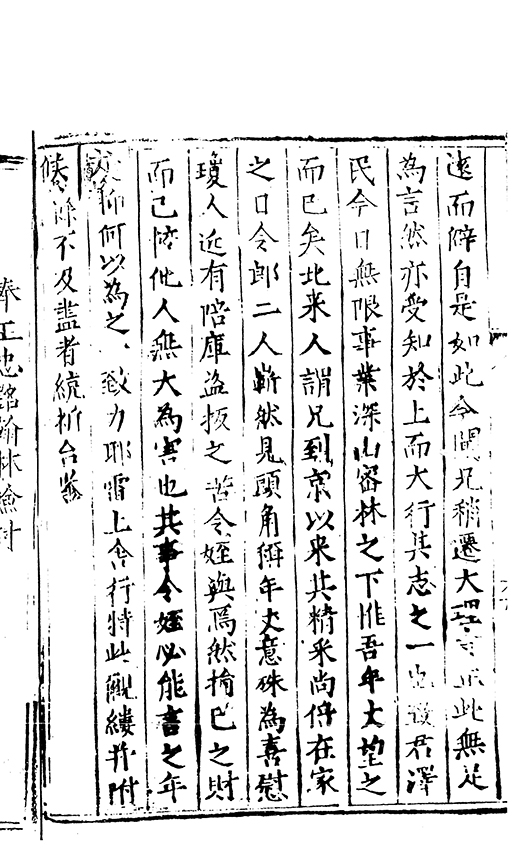 速而僻自是如此今聞兄稍遷大此無足
為言然亦受知於上而大行其志之一也致君澤
民今日無限事業深山密林之下惟吾年丈望之
而已矣北来人謂兄到京以来其精采尚倍在家
之日令郎二人嶄然見頭角獬年丈意殊為喜慰
瓊人近有陪庫盗扳之苦令姪與焉然捐已之財
而已於他人無大為害也其事令姪必能言之年
何以為之致力耶雷上舍行特此覼縷并附
餘不及盡者統祈台鑒
奉王忠銘翰林檢討